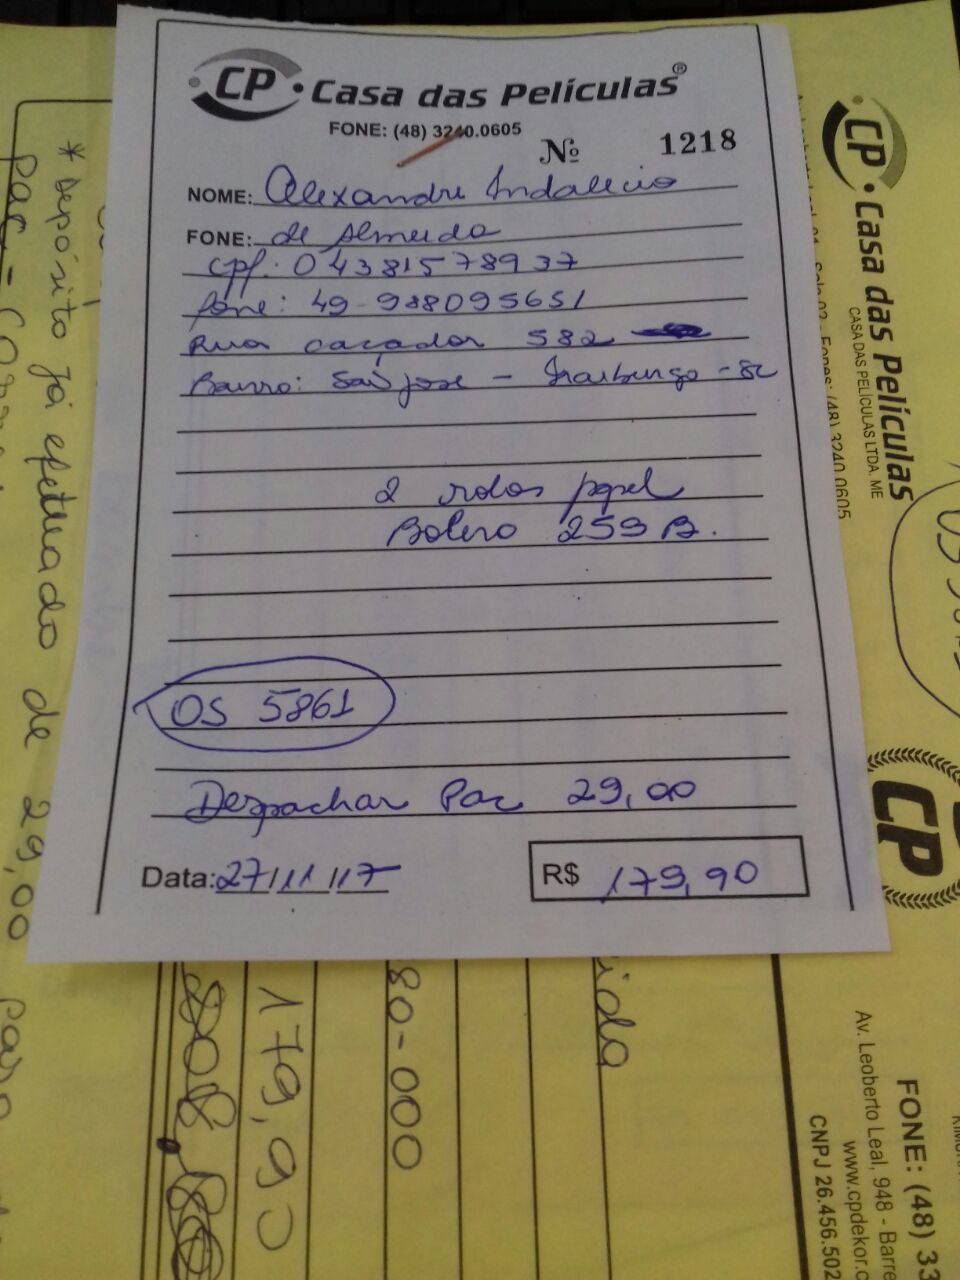 CP Casa das Películas®
FONE: (48) 3240.0605
Nº 1218
NOME: Alexandre Indalecio
FONE: de Almeida
cpf: 04381578937
fone: 49-988095651
Rua caçador 582
Bairro: São jose - Fraiburgo - SC
2 rolos papel
Bolero 259 B.
OS 5861
Despachar Pac 29,00
Data: 27/11/17 R$ 179,90
* Depósito já efetuado de 29,00 para
PAC -
CP Casa das Películas
CASA DAS PELÍCULAS LTDA. ME
Fones: (48) 3240.0605
CP
FONE: (48) 33
Av. Leoberto Leal, 948 - Barre
www.cpdekor.c
CNPJ 26.456.502
ida
80-000
179,90